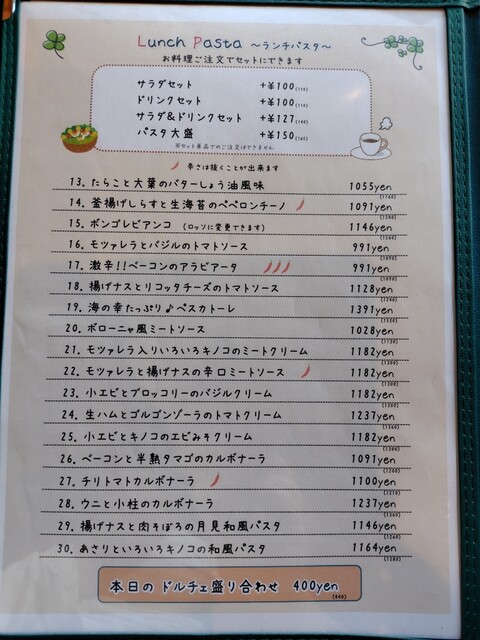 Lunch Pasta ～ランチパスタ～
お料理ご注文でセットにできます
サラダセット +¥100(110)
ドリンクセット +¥100(110)
サラダ&ドリンクセット +¥127(140)
パスタ大盛 +¥150(165)
※セット単品でのご注文はできません
辛さは抜くことが出来ます
13. たらこと大葉のバターしょう油風味 1055yen
(1160)
14. 釜揚げしらすと生海苔のペペロンチーノ 1091yen
(1200)
15. ボンゴレビアンコ (ロッソに変更できます) 1146yen
(1260)
16. モツァレラとバジルのトマトソース 991yen
(1090)
17. 激辛!!ベーコンのアラビアータ 991yen
(1090)
18. 揚げナスとリコッタチーズのトマトソース 1128yen
(1240)
19. 海の幸たっぷり♪ペスカトーレ 1391yen
(1530)
20. ボローニャ風ミートソース 1028yen
(1130)
21. モツァレラ入りいろいろキノコのミートクリーム 1182yen
(1300)
22. モツァレラと揚げナスの辛口ミートソース 1182yen
(1300)
23. 小エビとブロッコリーのバジルクリーム 1182yen
(1300)
24. 生ハムとゴルゴンゾーラのトマトクリーム 1237yen
(1360)
25. 小エビとキノコのエビみそクリーム 1182yen
(1300)
26. ベーコンと半熟タマゴのカルボナーラ 1091yen
(1200)
27. チリトマトカルボナーラ 1100yen
(1210)
28. ウニと小柱のカルボナーラ 1237yen
(1360)
29. 揚げナスと肉そぼろの月見和風パスタ 1146yen
(1260)
30. あさりといろいろキノコの和風パスタ 1164yen
(1280)
本日の ドルチェ盛り合わせ 400yen
(440)